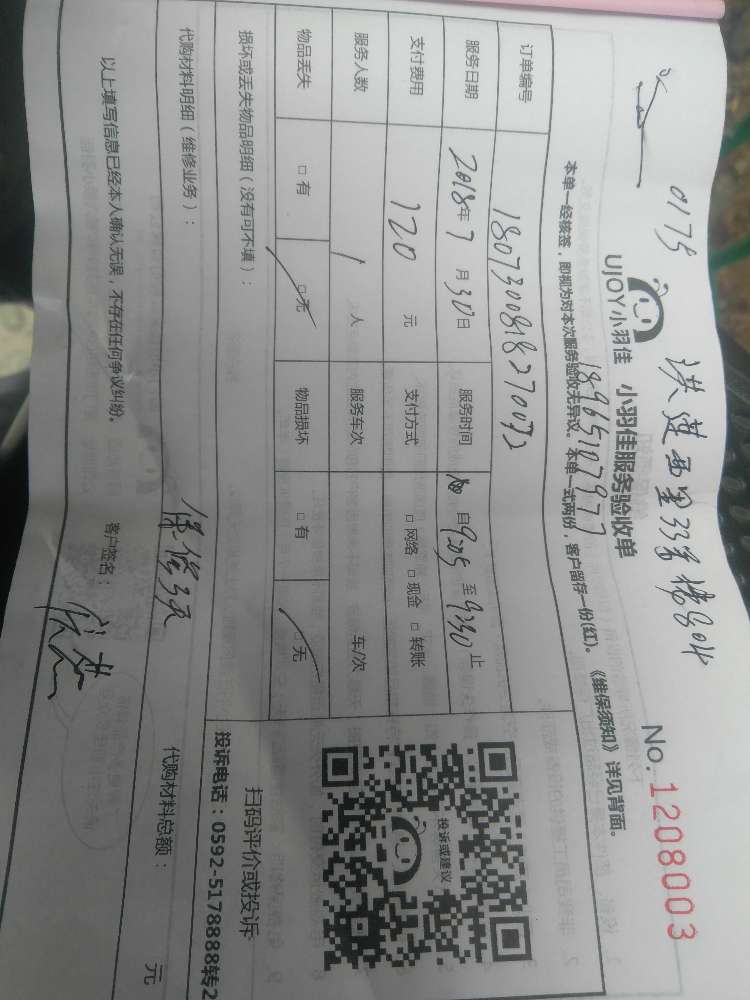 0175 洪莲西里33号楼804
No.1208003
UJOY小羽佳 小羽佳服务验收单
18965107977
本单一经核签，即视为对本次服务验收无异议。本单一式两份，客户留存一份(红)。《维保须知》详见背面。
订单编号 180730081827007
服务日期 2018年7月30日 服务时间 自9:05至9:30止
支付费用 120元 支付方式 □网络 □现金 □转账
服务人数 1人 服务车次 车/次
物品丢失 □有 □无 物品损坏 □有 □无
损坏或丢失物品明细（没有可不填）：
投诉或建议
扫码评价或投诉
投诉电话：0592-5178888转2
代购材料明细（维修业务）： 代购材料总额： 元
保修3天
以上填写信息已经本人确认无误，不存在任何争议纠纷。 客户签名：